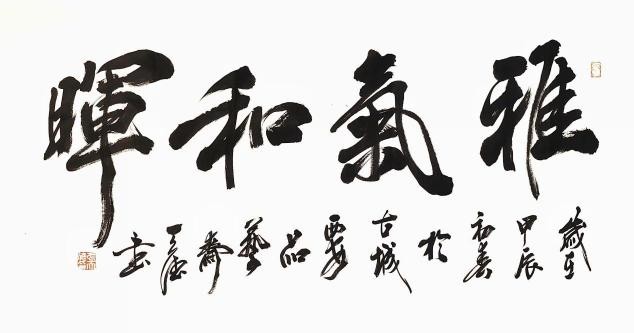 雅氣和暉
歲在甲辰初春於古城西安品藝齋書